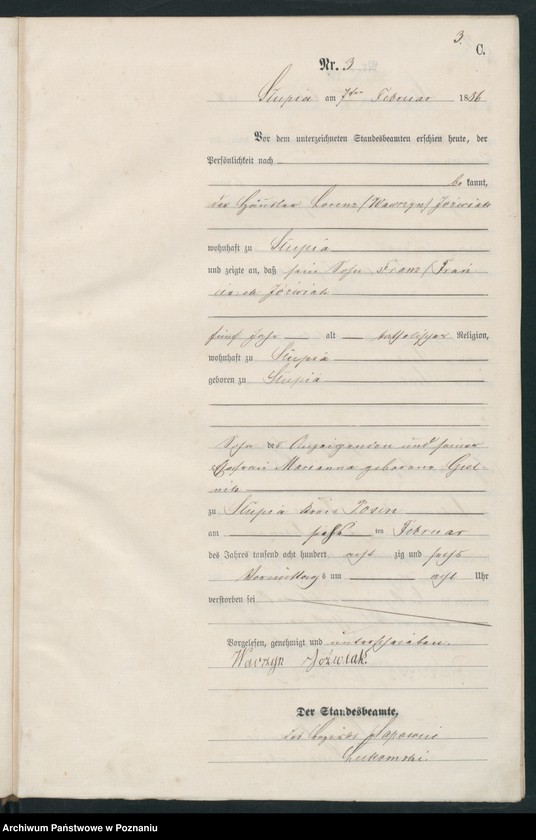 3.
C.
Nr. 3
Słupia am 7ten Februar 1886
Vor dem unterzeichneten Standesbeamten erschien heute, der
Persönlichkeit nach
be kannt,
der Händler Lorenz (Wawrzyn) Jóźwiak
wohnhaft zu Słupia
und zeigte an, daß sein Sohn Franz (Fran
Jóźwiak
fünf Jahr alt katholischer Religion,
wohnhaft zu Słupia
geboren zu Słupia
Sohn des Anzeigenden und seiner
Ehefrau Marianna geborene
zu Słupia Kreis Posen
am sechs ten Februar
des Jahres tausend acht hundert acht zig und sechs
Vormittags um acht Uhr
verstorben sei
Vorgelesen, genehmigt und unterschrieben.
Wawrzyn Jóźwiak
Der Standesbeamte.
Archiwum Państwowe w Poznaniu